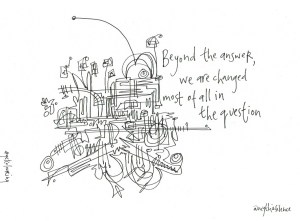 Beyond the answer,
we are changed
most of all in
the question